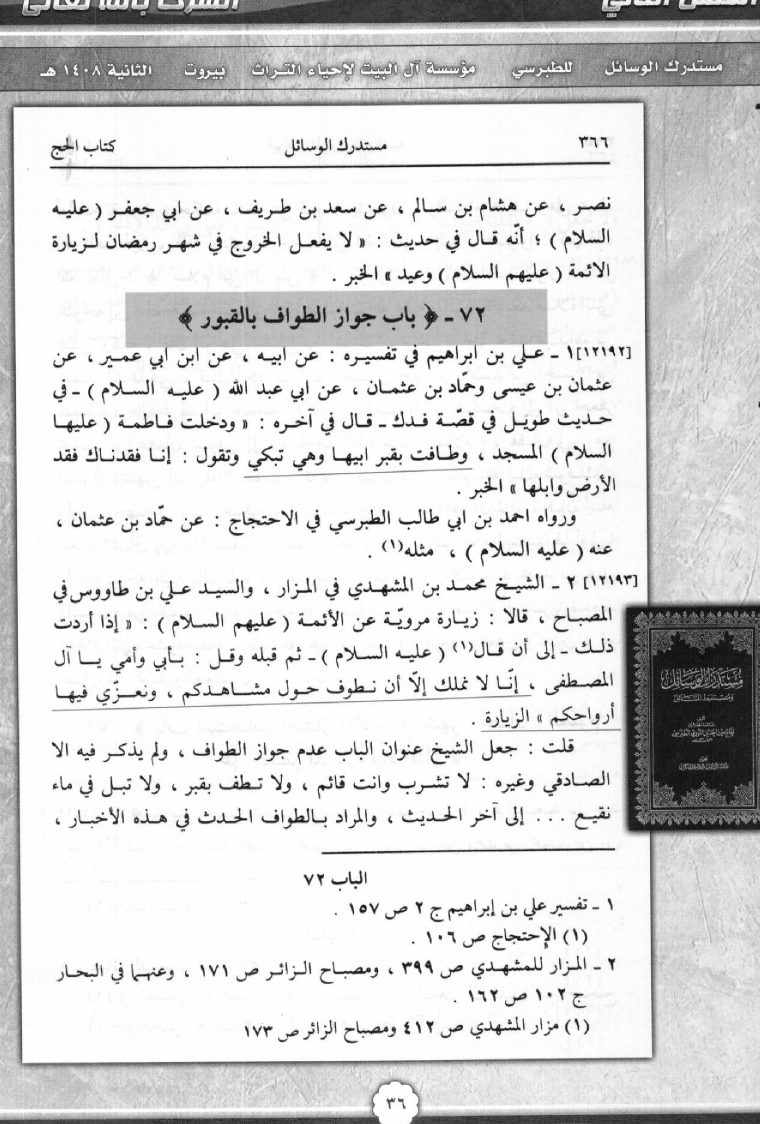 الفصل الثاني الشرك بالله تعالى
مستدرك الوسائل للطبرسي مؤسسة آل البيت لإحياء التراث بيروت الثانية ١٤٠٨ هـ
٣٦٦ مستدرك الوسائل كتاب الحج
نصر ، عن هشام بن سالم ، عن سعد بن طريف ، عن ابي جعفر ( عليه
السلام ) ؛ أنّه قال في حديث : « لا يفعل الخروج في شهر رمضان لزيارة
الائمة ( عليهم السلام ) وعيد » الخبر .
٧٢ ـ ﴿ باب جواز الطواف بالقبور ﴾
[١٢١٩٢] ١ ـ علي بن ابراهيم في تفسيره : عن ابيه ، عن ابن ابي عمير ، عن
عثمان بن عيسى وحمّاد بن عثمان ، عن ابي عبد الله ( عليه السلام ) ـ في
حديث طويل في قصّة فدك ـ قال في آخره : « ودخلت فاطمة ( عليها
السلام ) المسجد ، وطافت بقبر ابيها وهي تبكي وتقول : إنا فقدناك فقد
الأرض وابلها » الخبر .
ورواه احمد بن ابي طالب الطبرسي في الاحتجاج : عن حمّاد بن عثمان ،
عنه ( عليه السلام ) ، مثله(١) .
[١٢١٩٣] ٢ ـ الشيخ محمد بن المشهدي في المزار ، والسيد علي بن طاووس في
المصباح ، قالا : زيارة مرويّة عن الأئمة ( عليهم السلام ) : « إذا أردت
ذلك ـ إلى أن قال(١) ( عليه السلام ) ـ ثم قبله وقل : بأبي وأمي يا آل
المصطفى ، إنّا لا نملك إلّا أن نطوف حول مشاهدكم ، ونعزّي فيها
أرواحكم » الزيارة .
قلت : جعل الشيخ عنوان الباب عدم جواز الطواف ، ولم يذكر فيه الا
الصادقي وغيره : لا تشرب وانت قائم ، ولا تطف بقبر ، ولا تبل في ماء
نقيع ... إلى آخر الحديث ، والمراد بالطواف الحدث في هذه الأخبار ،
الباب ٧٢
١ ـ تفسير علي بن إبراهيم ج ٢ ص ١٥٧ .
(١) الإحتجاج ص ١٠٦ .
٢ ـ المزار للمشهدي ص ٣٩٩ ، ومصباح الزائر ص ١٧١ ، وعنهما في البحار
ج ١٠٢ ص ١٦٢ .
(١) مزار المشهدي ص ٤١٢ ومصباح الزائر ص ١٧٣
مستدرك الوسائل
٣٦